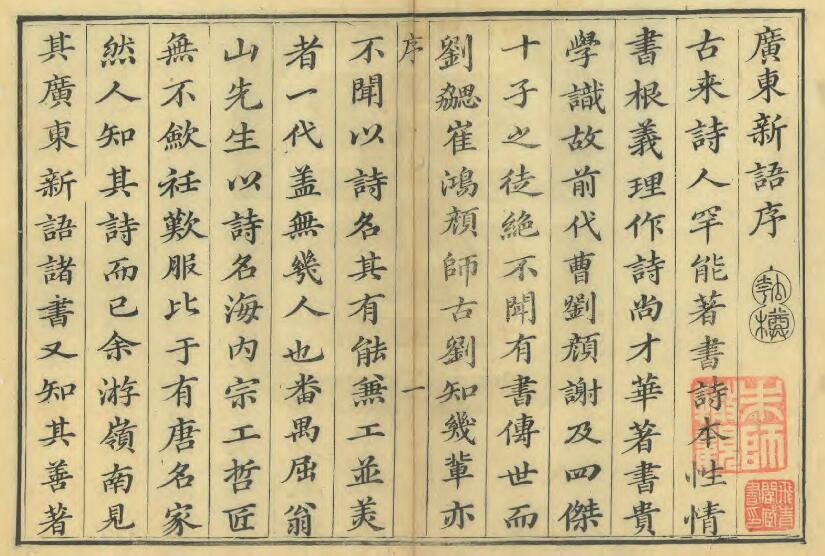 廣東新語序
古来詩人罕能著書詩本性情
書根義理作詩尚才華著書貴
學識故前代曹劉顏謝及四傑
十子之徒絶不聞有書傳世而
劉勰崔鴻顏師古劉知幾輩亦
序 一
不聞以詩名其有能兼工並美
者一代盖無幾人也番禺屈翁
山先生以詩名海内宗工哲匠
無不歛衽歎服比于有唐名家
然人知其詩而已余游嶺南見
其廣東新語諸書又知其善著